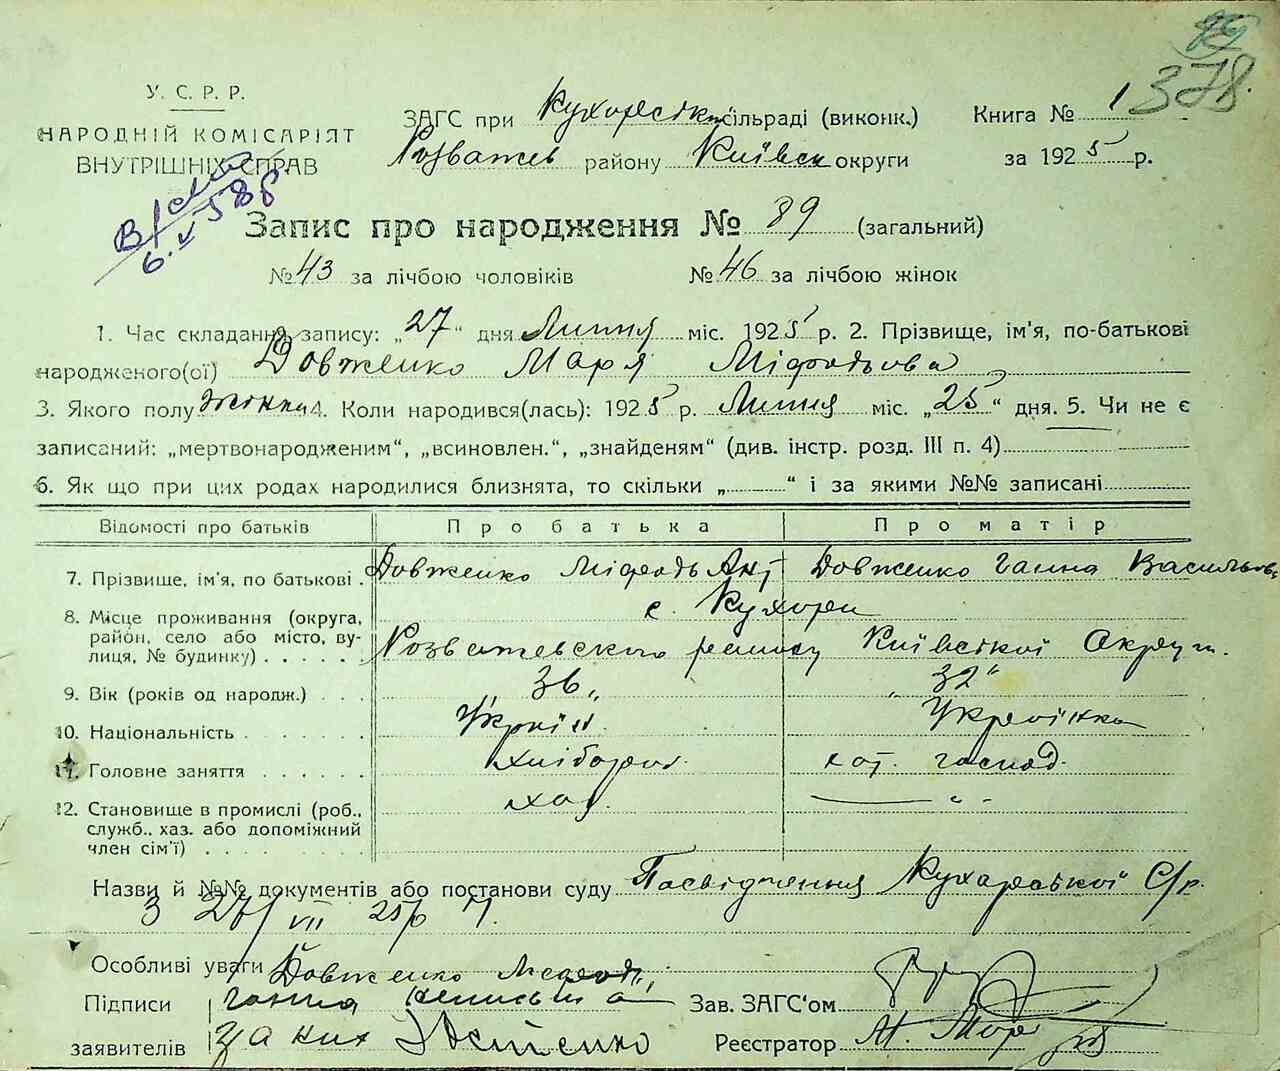 У. С. Р. Р.
НАРОДНІЙ КОМІСАРІЯТ
ВНУТРІШНІХ СПРАВ
378.
ЗАГС при Кухарській сільраді (виконк.) Книга № 1
Розважев району Київськ округи за 1925 р.
Запис про народження № 89 (загальний)
№ 43 за лічбою чоловіків № 46 за лічбою жінок
1. Час складання запису: „27“ дня Липня міс. 1925 р. 2. Прізвище, ім'я, по-батькові
народженого(ої) Довженко Маря Міфодьова
3. Якого полу жінка 4. Коли народився(лась): 1925 р. Липня міс. „25“ дня. 5. Чи не є
записаний: „мертвонародженим“, „всиновлен.“, „знайденям“ (див. інстр. розд. III п. 4)
6. Як що при цих родах народилися близнята, то скільки „ “ і за якими №№ записані
Відомості про батьків Про батька Про матір
7. Прізвище, ім'я, по батькові Довженко Міфодь Ант Довженко Ганна Васильов
8. Місце проживання (округа, район, село або місто, вулиця, № будинку) с. Кухари
Розважевского району Київської Округи
9. Вік (років од народж.) 36 „32“
10. Національність Украін Украінка
11. Головне заняття хлібороб дом. господ.
12. Становище в промислі (роб., служб., хаз. або допоміжний член сім'ї) хаз. — „ -
Назви й №№ документів або постанови суду Посвідчення Кухарської С/р.
з 27/VII 25 р
Особливі уваги Довженко Міфодь,
Підписи Ганна неписьмена
заявителів За них
Зав. ЗАГС'ом
Реєстратор М.